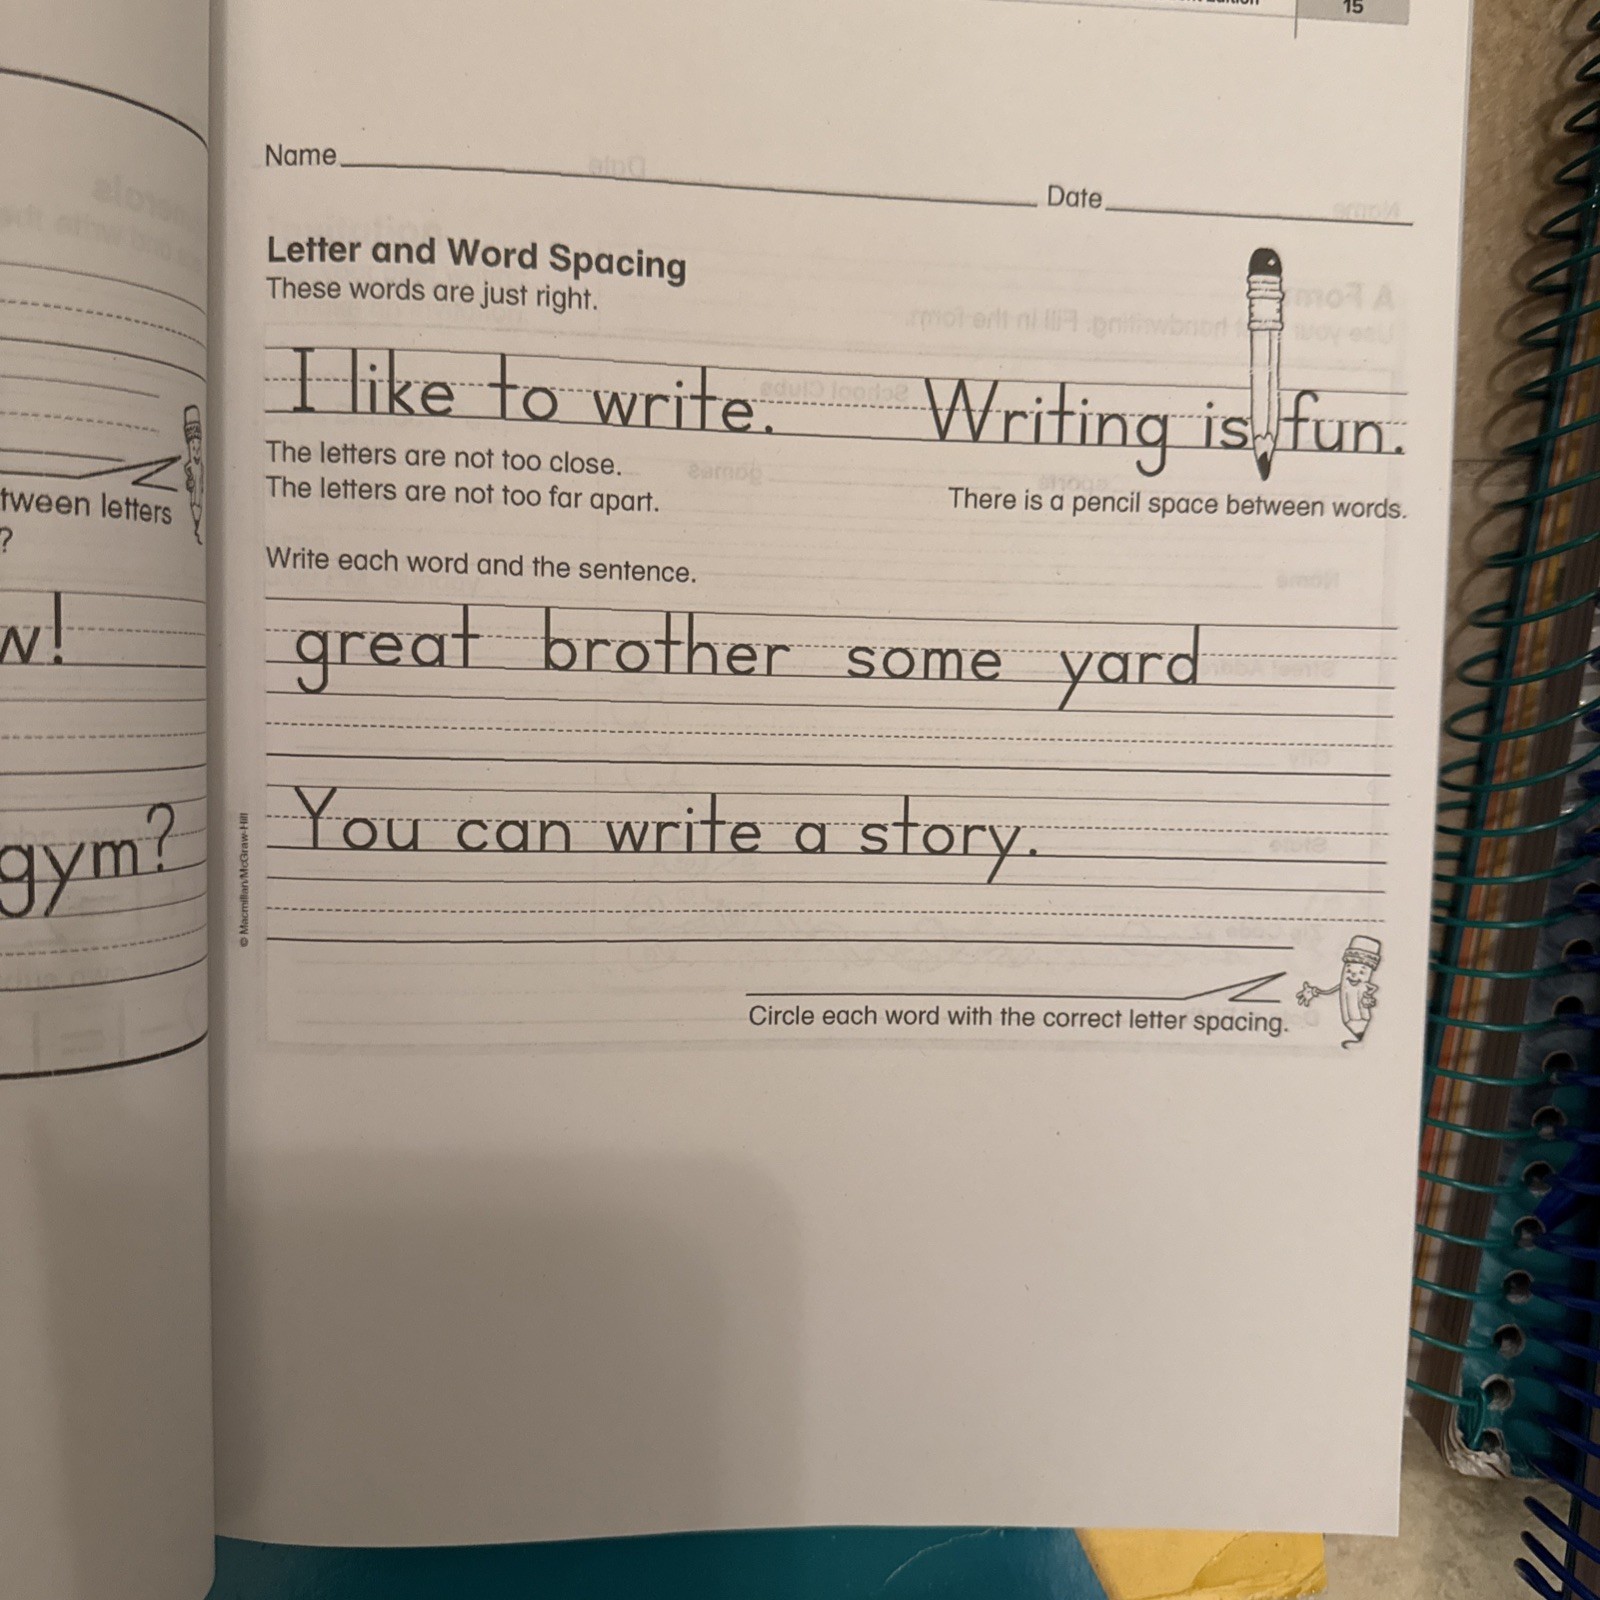 15
Name Date
Letter and Word Spacing
These words are just right.
I like to write. Writing is fun.
The letters are not too close.
The letters are not too far apart.
There is a pencil space between words.
Write each word and the sentence.
great brother some yard
You can write a story.
Circle each word with the correct letter spacing.
© Macmillan/McGraw-Hill
letters
?
gym?